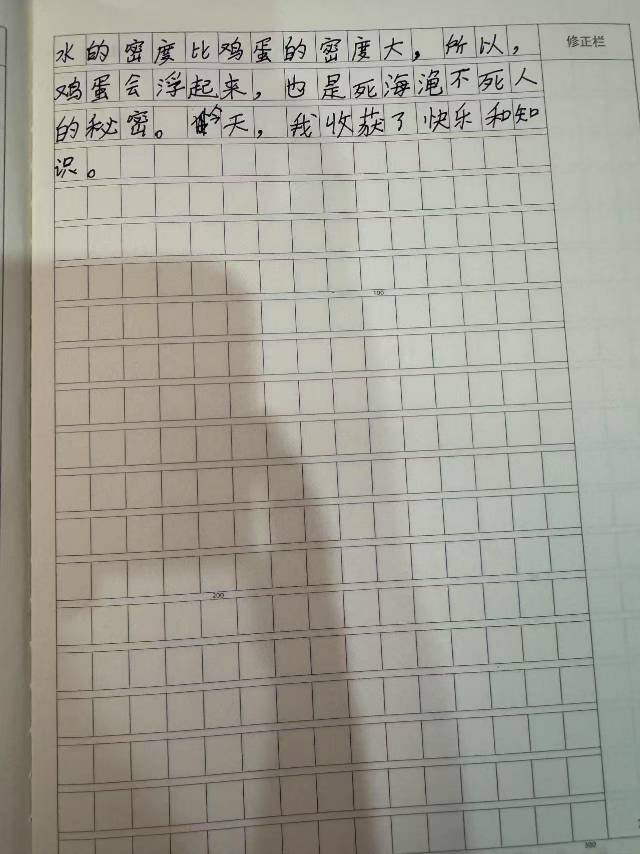 水的密度比鸡蛋的密度大，所以，
修正栏
鸡蛋会浮起来，也是死海淹不死人
的秘密。今天，我收获了快乐和知
识。
100
200
300